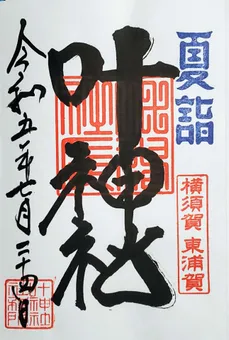 夏詣
横須賀 東浦賀
叶神社
令和五年七月二十四日